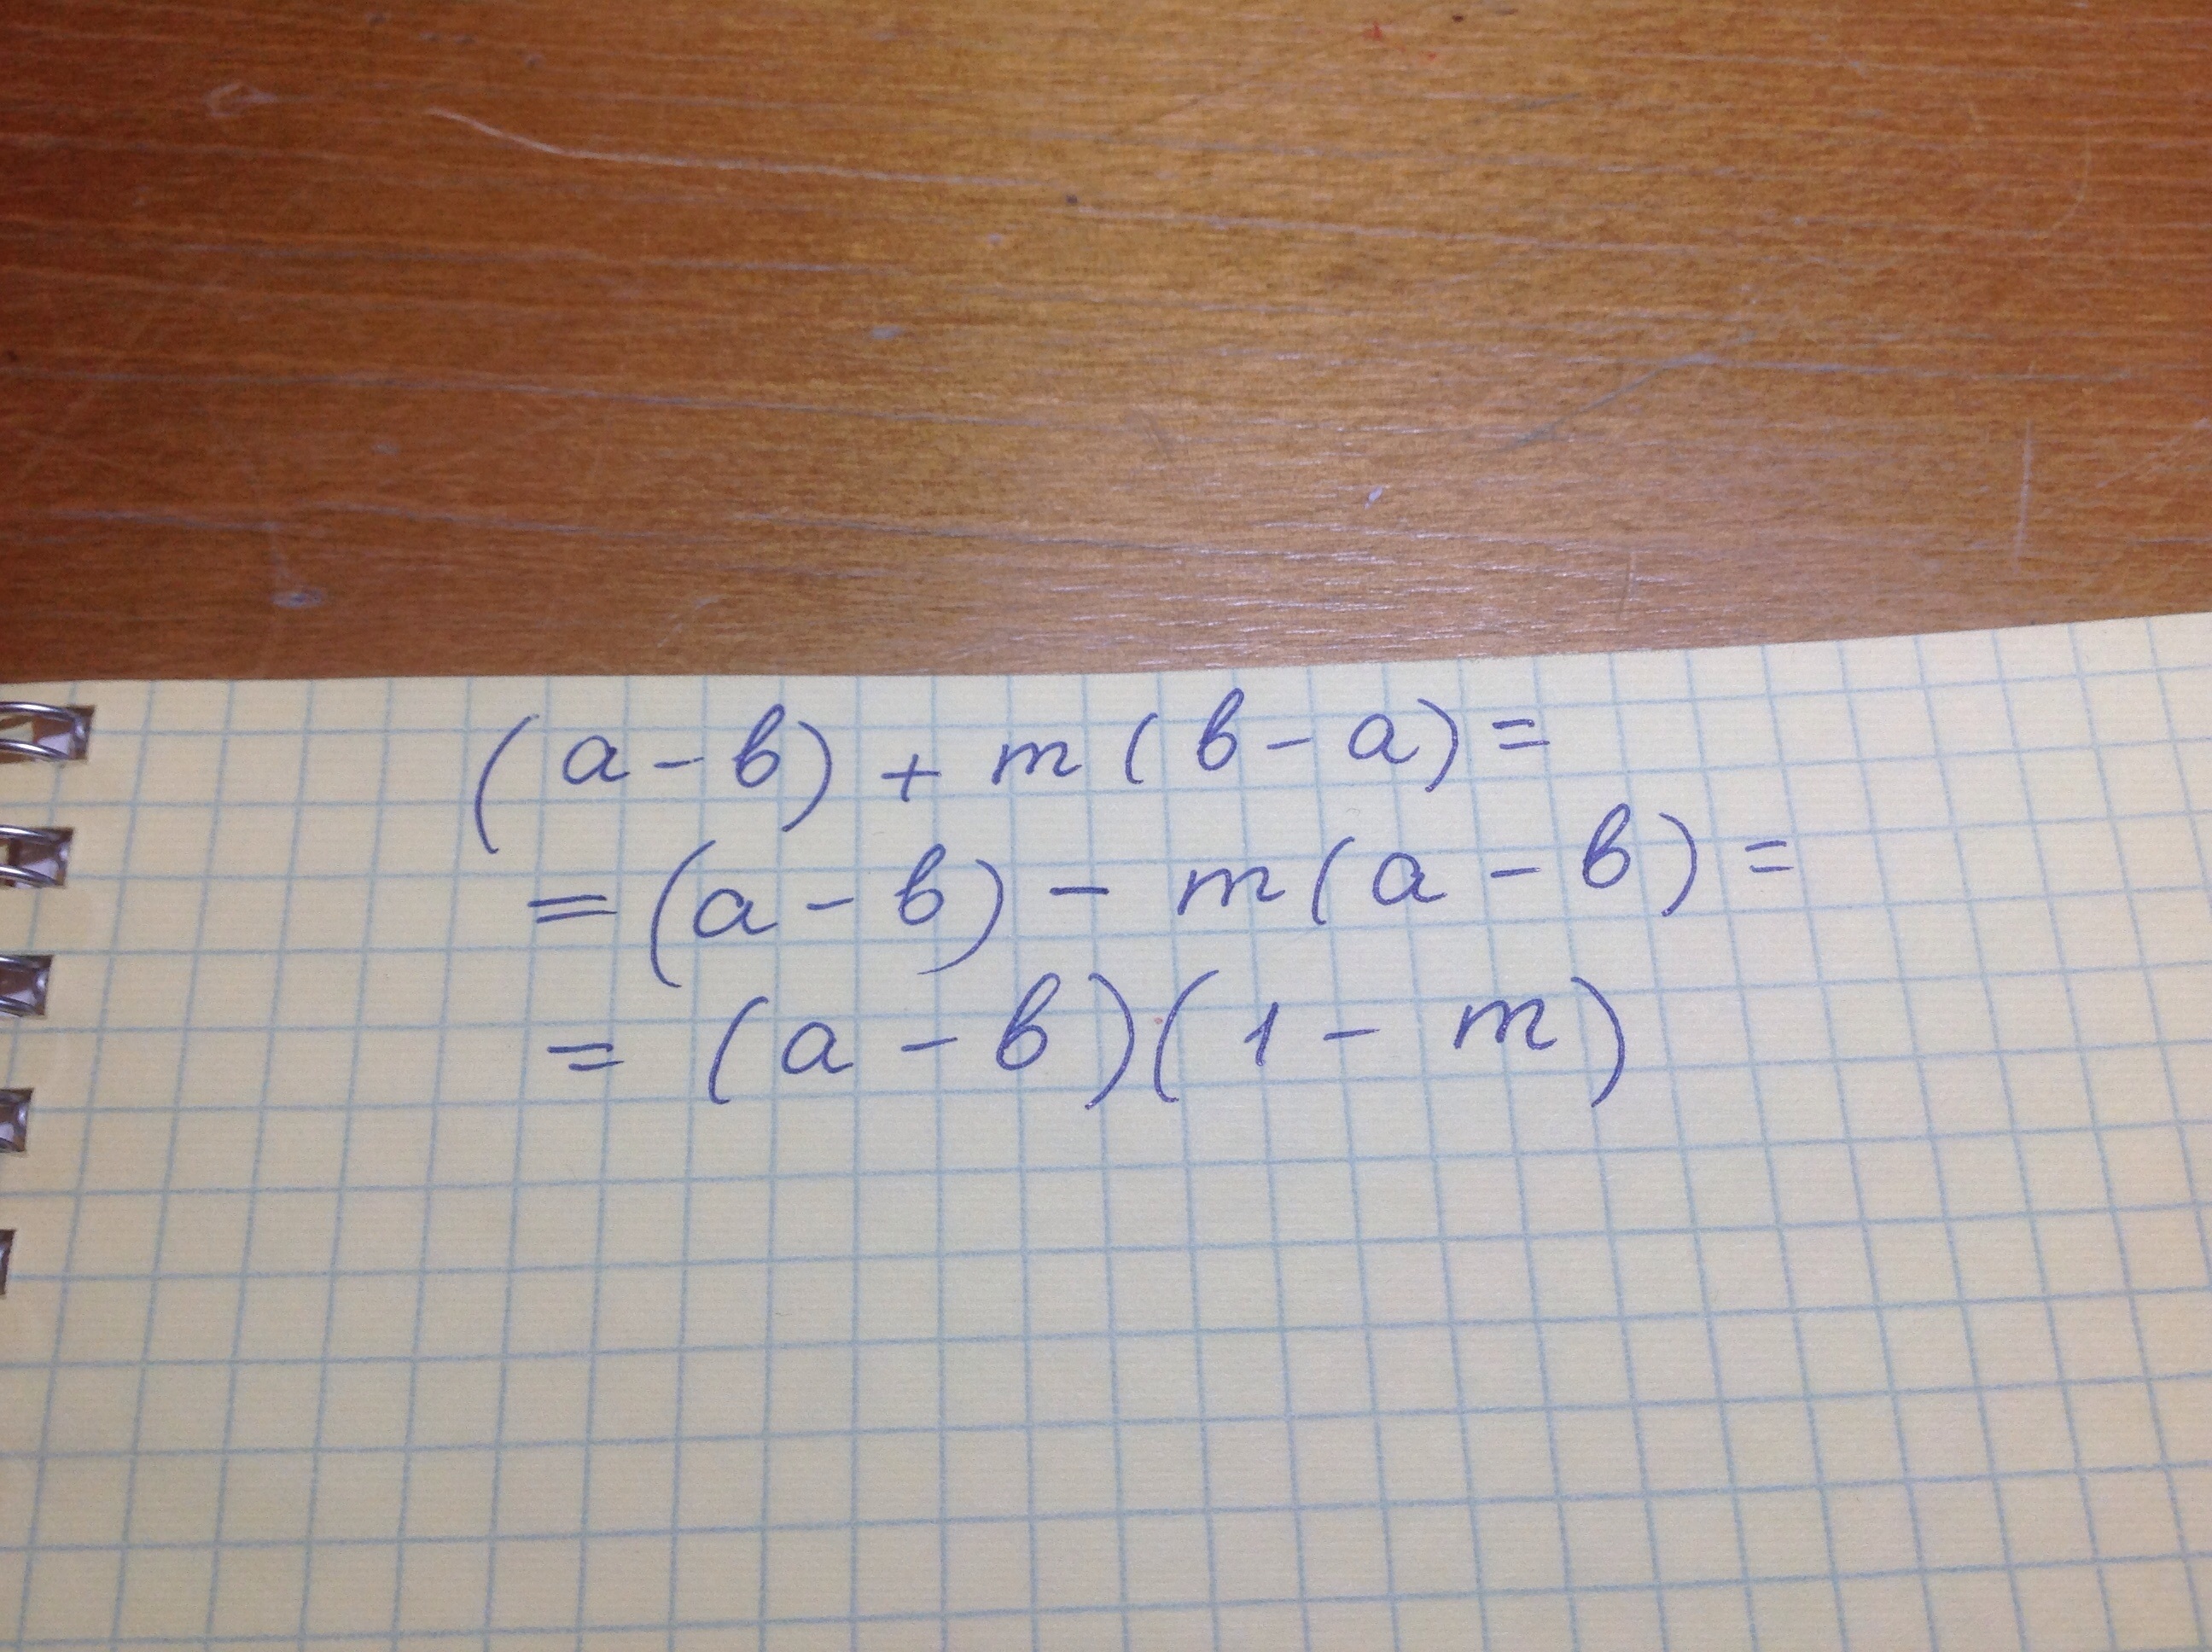 (a-b)+m(b-a)=
=(a-b)-m(a-b)=
=(a-b)(1-m)